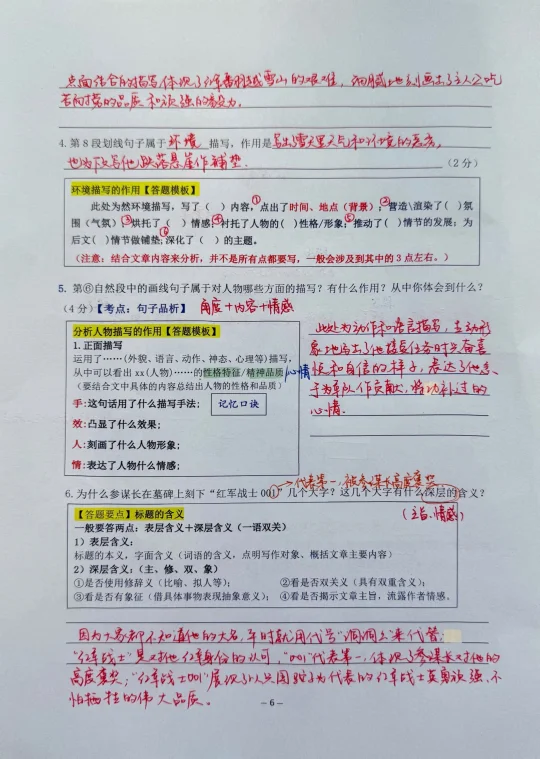 点面结合的描写体现了洋番翻越雪山的艰难，细腻地刻画出了主人公吃
苦耐劳的品质和顽强的毅力。
4. 第 8 段划线句子属于 环境 描写，作用是写出雪天里天气和环境的恶劣，
也为下文写他跌落悬崖作铺垫. （2 分）
环境描写的作用【答题模板】
此处为然环境描写，写了（ ）内容，①点出了时间、地点（背景）；②营造\渲染了( )氛
围（气氛）；③烘托了（ ）情感；④衬托了人物的( )性格/形象；⑤推动了（ ）情节的发展；为
后文( )情节做铺垫；⑥深化了（ ）的主题。
（注意：结合文章内容来分析，并不是所有点都要写，一般会涉及到其中的 3 点左右。）
5. 第⑥自然段中的画线句子属于对人物哪些方面的描写？有什么作用？从中你体会到什么？
（4 分）【考点：句子品析】 角度＋内容＋情感
分析人物描写的作用【答题模板】
1. 正面描写
运用了……(外貌、语言、动作、神态、心理等)描写，
从中可以看出 xx(人物)……的性格特征/精神品质/心情
（要结合文中具体的内容总结出人物的性格和品质）
手：这句话用了什么描写手法； 记忆口诀
效：凸显了什么效果；
人：刻画了什么人物形象；
情：表达了人物什么情感；
此处为动作和语言描写，生动形
象地写出了他接受任务时兴奋喜
悦和自信的样子，表达了他
于为部队作贡献，将功补过的
心情.
→代表第一，被参谋长高度褒奖
6. 为什么参谋长在墓碑上刻下“红军战士 001”几个大字？这几个大字有什么深层的含义？
（主旨、情感）
【答题要点】标题的含义
一般要答两点：表层含义＋深层含义（一语双关）
1）表层含义：
标题的本义，字面含义（词语的含义，点明写作对象、概括文章主要内容）
2）深层含义：（主、修、双、象）
①是否使用修辞义（比喻、拟人等）； ②看是否双关义（具有双重含义）；
③看是否有象征（借具体事物表现抽象意义）； ④看是否揭示文章主旨，流露作者情感。
因为大客都不知道他的大名，平时就用代号“洞洞幺”来代替；
“红军战士”是对他红军身份的认可，“001”代表第一，体现了参谋长对他的
高度褒奖；“红军战士001”展现了以为代表的红军战士英勇顽强、不
怕牺牲的伟大品质。
– 6 –